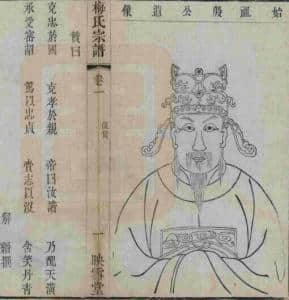 始祖殷公遺像
梅氏宗譜
卷一
像贊
一
映雪堂
贊曰
克忠於國 克孝於親 帝曰汝諧 乃 天
承受 篤以忠貞 志以沒 含笑丹青